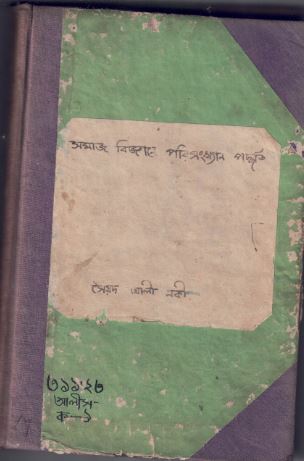 সমাজ বিজ্ঞানে পরিসংখ্যান পদ্ধতি
সৈয়দ আলী নকী
৩১১.২৩
আলীস-
ক-১